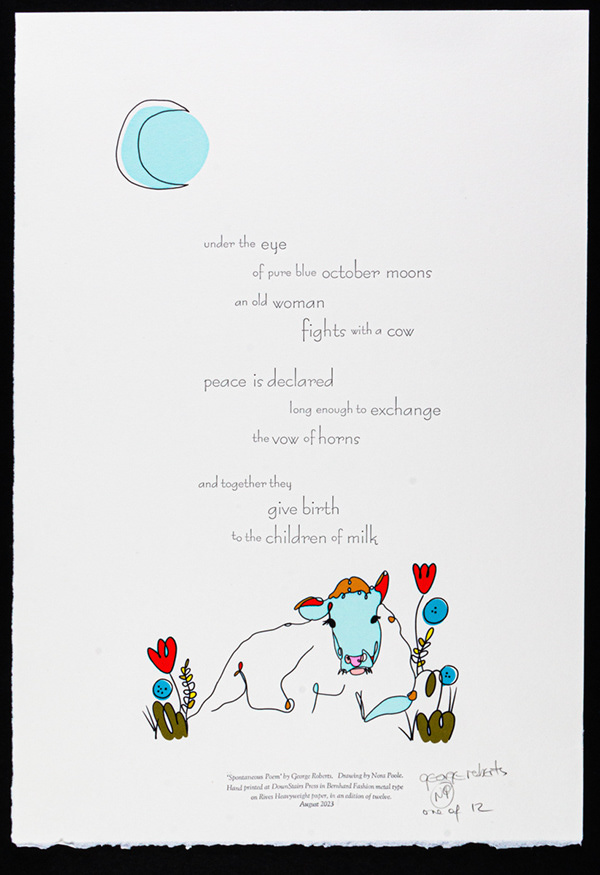 under the eye
of pure blue october moons
an old woman
fights with a cow
peace is declared
long enough to exchange
the vow of horns
and together they
give birth
to the children of milk
"Spontaneous Poem" by George Roberts. Drawing by Nora Poole.
Hand printed at DownStairs Press in Bernhard Fashion metal type
on Rives Heavyweight paper, in an edition of twelve.
August 2023
george roberts
NP
one of 12